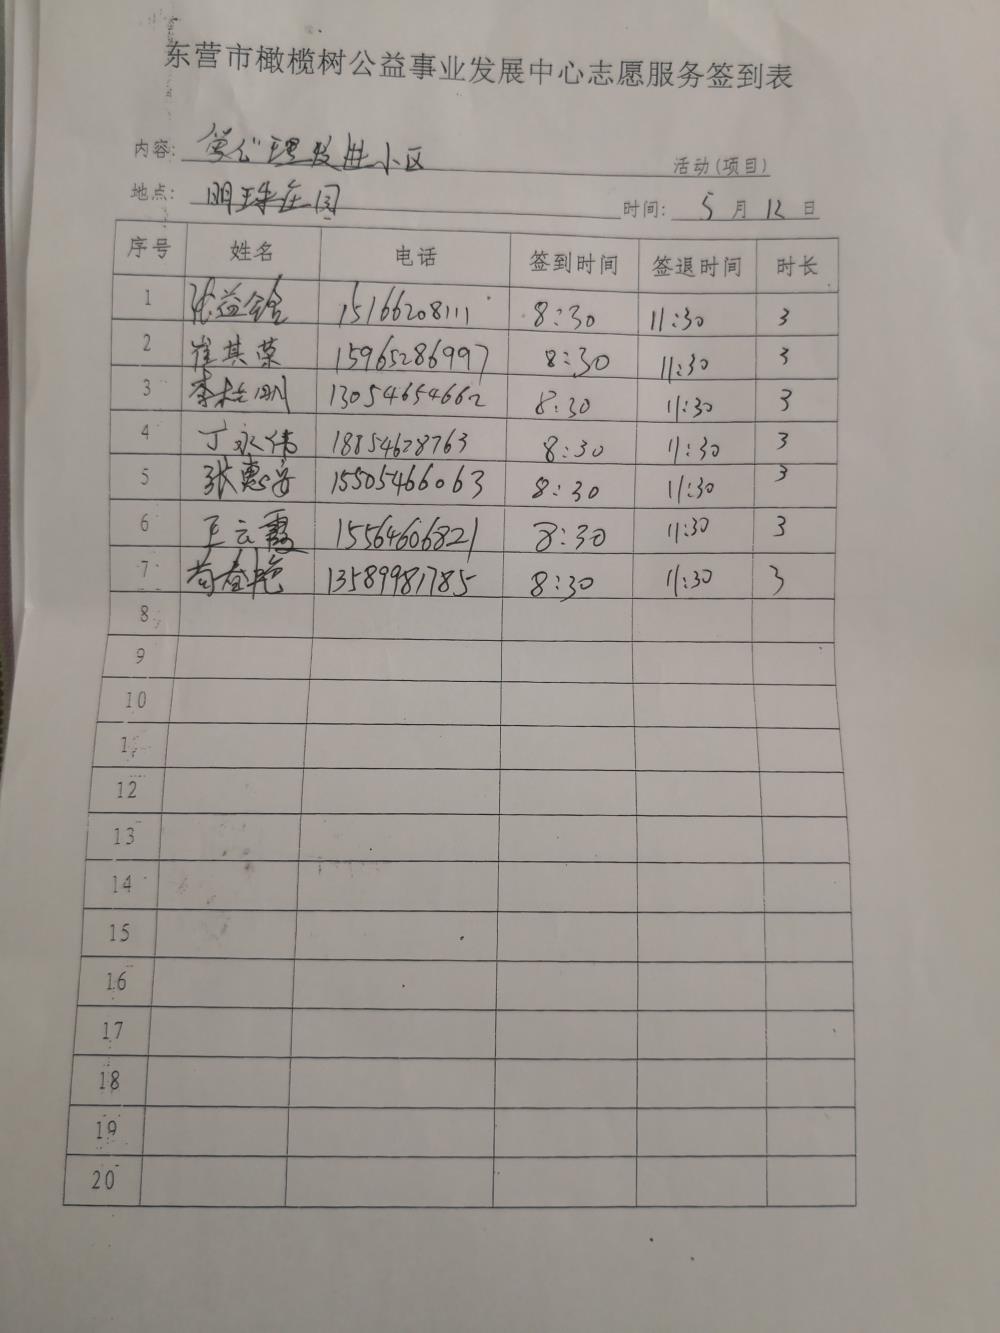 东营市橄榄树公益事业发展中心志愿服务签到表
内容: 理发进小区 活动(项目)
地点: 明珠庄园 时间: 5 月 12 日
序号 姓名 电话 签到时间 签退时间 时长
1 张益 15166208111 8:30 11:30 3
2 崔其荣 15965286997 8:30 11:30 3
3 李桂明 13054654662 8:30 11:30 3
4 丁永伟 18854628763 8:30 11:30 3
5 张惠安 15505466063 8:30 11:30 3
6 王云霞 15564606821 8:30 11:30 3
7 苟春艳 13589981785 8:30 11:30 3
8
9
10
1
12
13
14
15
16
17
18
19
20